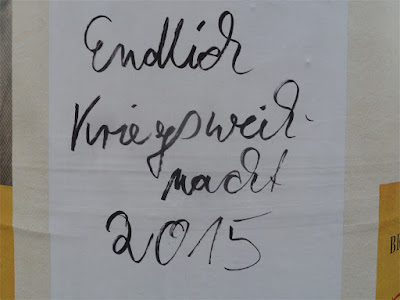 Endlich
Kriegsweih-
nacht
2015